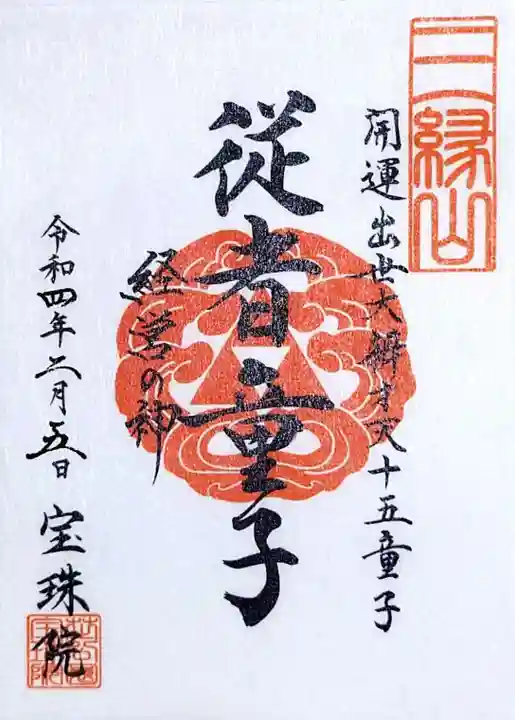 三縁山
開運出世大辨才天十五童子
従者童子
経営の神
令和四年二月五日
宝珠院